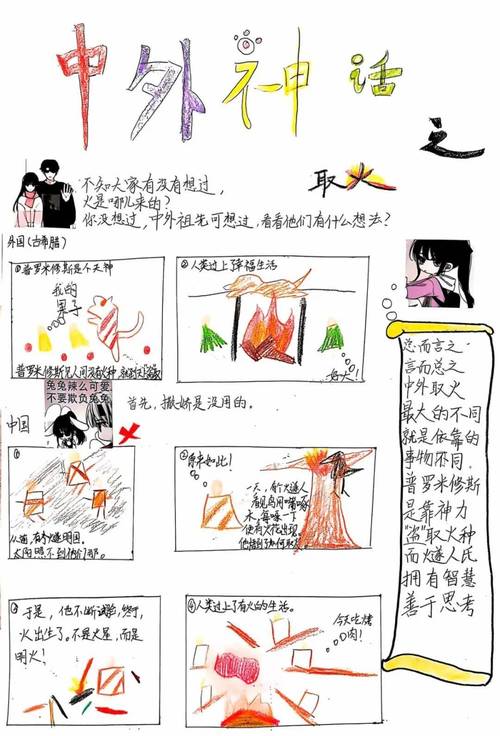 中外神话
之
取火
不知大家有没有想过，
火是哪儿来的？
你没想过，中外祖先可想过，看看他们有什么想法？
外国（古希腊）
①普罗米修斯是个天神
我的
果子
普罗米修斯见人间没有火种，
②人类过上了幸福生活
好火！
兔兔辣么可爱
不要欺负兔兔
首先，撒娇是没用的。
中国
①
从前，有个燧明国。
太阳照不到他们那。
②原来如此！
一天，有个燧人
看见鸟用嘴啄
木，每啄一下
便有火花出现。
他想到如何取火
③于是，他不断试验，终于，
火出生了。不是火星，而是
明火！
④人类过上了有火的生活。
今天吃烤
肉！
总而言之
言而总之
中外取火
最大的不同
就是依靠的
事物不同。
普罗米修斯
是靠神力
“盗”取火种
而燧人民
拥有智慧
善于思考